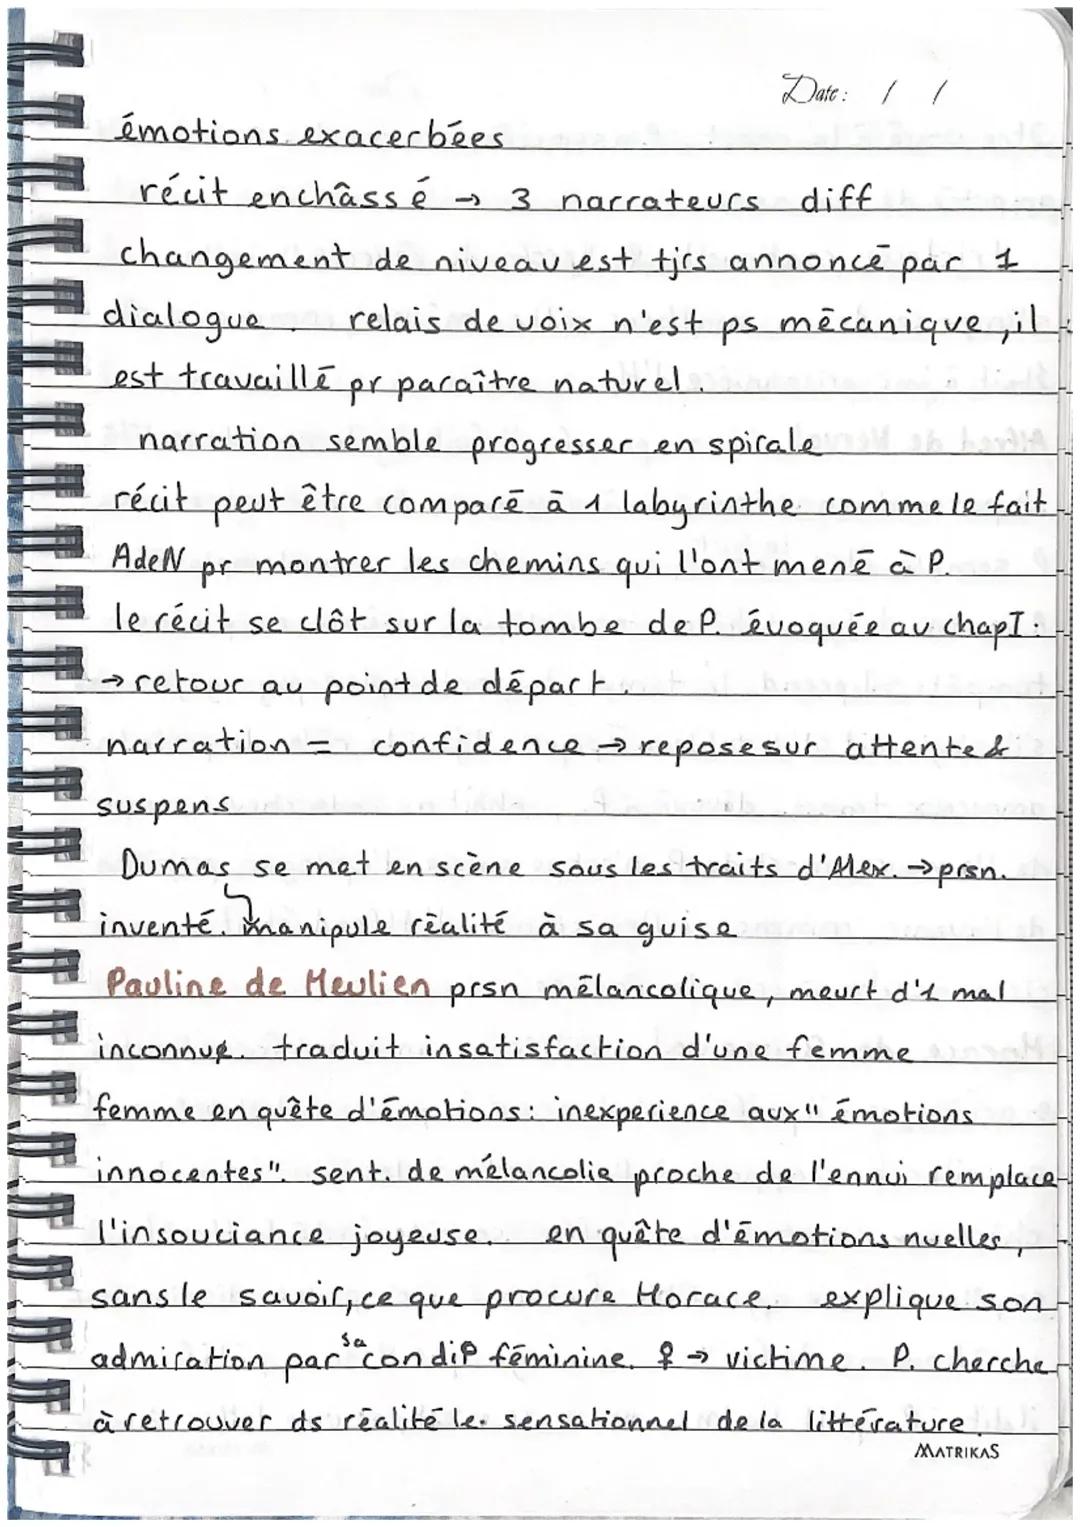 Date: / /
émotions exacerbées
récit enchâssé → 3 narrateurs diff
changement de niveau est tjrs annoncé par 1
dialogue. relais de voix n'est ps mécanique, il
est travaillé pr paraître naturel.
narration semble progresser en spirale
récit peut être comparé à 1 labyrinthe comme le fait
AdeN pr montrer les chemins qui l'ont mené à P.
le récit se clôt sur la tombe de P. évoquée au chap I :
→ retour au point de départ.
narration = confidence → repose sur attente &
suspens
Dumas se met en scène sous les traits d'Alex. → prsn.
inventé. manipule réalité à sa guise
Pauline de Meulien prsn mélancolique, meurt d'1 mal
inconnue. traduit insatisfaction d'une femme
femme en quête d'émotions: inexperience aux" émotions
innocentes". sent. de mélancolie proche de l'ennui remplace
l'insouciance joyeuse. en quête d'émotions nuelles,
sans le savoir, ce que procure Horace. explique son
admiration par sa condi° féminine. ♀ → victime. P. cherche
à retrouver ds réalité le sensationnel de la littérature.
MATRIKAS